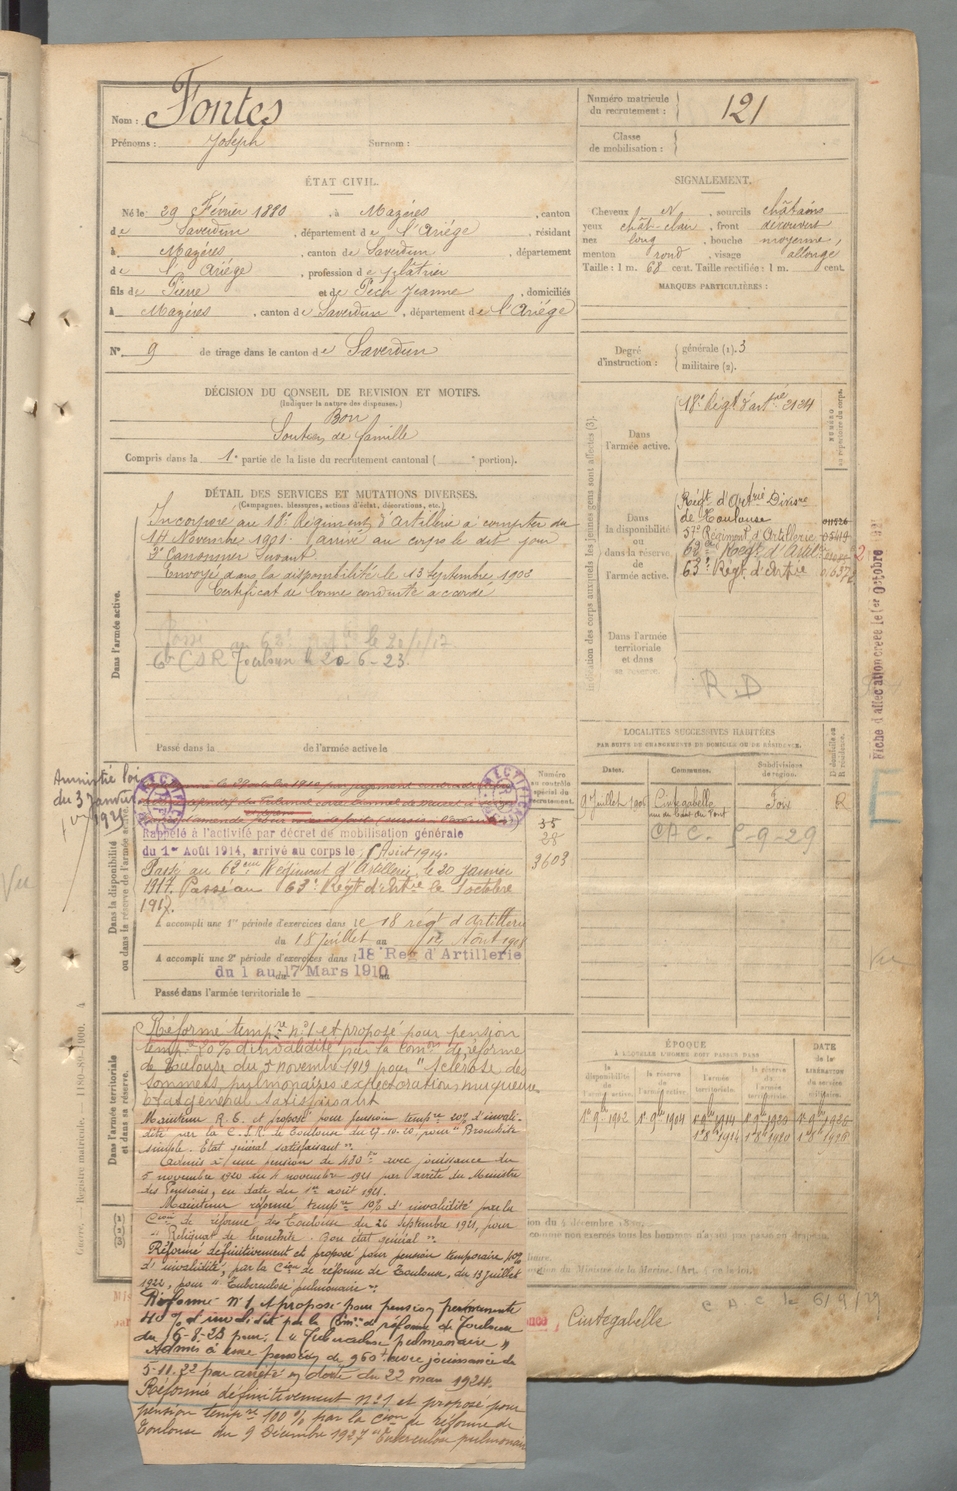 Nom : Fontes
Prénoms : Joseph Surnom :
Numéro matricule du recrutement : 121
Classe de mobilisation :
ÉTAT CIVIL.
Né le 29 Février 1880, à Mazères, canton
de Saverdun, département de l'Ariége, résidant
à Mazères, canton de Saverdun, département
de l'Ariége, profession de plâtrier
fils de Pierre et de Pech Jeanne, domiciliés
à Mazères, canton de Saverdun, département de l'Ariége
N° 9 de tirage dans le canton de Saverdun
SIGNALEMENT.
Cheveux N, sourcils châtains
yeux chât-clair, front découvert
nez long, bouche moyenne,
menton rond, visage allongé
Taille : 1 m. 68 cent. Taille rectifiée : 1 m. cent.
MARQUES PARTICULIÈRES :
Degré d'instruction : générale (1). 3
militaire (2).
DÉCISION DU CONSEIL DE REVISION ET MOTIFS.
(Indiquer la nature des dispenses.)
Bon
Soutien de famille
Compris dans la 1e partie de la liste du recrutement cantonal ( e portion).
DÉTAIL DES SERVICES ET MUTATIONS DIVERSES.
(Campagnes, blessures, actions d'éclat, décorations, etc.)
Dans l'armée active.
Incorporé au 18e Régiment d'Artillerie à compter du
14 Novembre 1901. Arrivé au corps le dit jour
2e Canonnier Servant.
Envoyé dans la disponibilité le 13 Septembre 1903
Certificat de bonne conduite accordé
CSR Toulouse le 20-6-23.
Passé dans la de l'armée active le
Indication des corps auxquels les jeunes gens sont affectés (3).
Dans l'armée active.
18e Régt d'artrie 2124
NUMÉRO au répertoire du corps.
Dans la disponibilité ou dans la réserve de l'armée active.
Régt d'Artrie Divre
de Toulouse
57e Régiment d'Artillerie
62e Régt d'Artie
63e Régt d'Artie
Dans l'armée territoriale et dans sa réserve.
R.D
Fiche d'affectation créée le 1er Octobre
Amnistié loi
du 3 Janvier
1925
Dans la disponibilité ou dans la réserve de l'armée active.
RECTIFIÉ
RECTIFIÉ
Numéro au contrôle spécial du recrutement.
35
28
3603
Rappelé à l'activité par décret de mobilisation générale
du 1er Août 1914, arrivé au corps le Août 1914.
Passé au 62ème Régiment d'Artillerie, le 20 Janvier
1917. Passé au 63e Régt d'Artie le 1 octobre
1917.
A accompli une 1re période d'exercices dans le 18 régt d'Artillerie
du 18 Juillet au 14 Août 1908
A accompli une 2e période d'exercices dans l 18 Reg d'Artillerie
du 1 au 17 Mars 1910
Passé dans l'armée territoriale le
LOCALITÉS SUCCESSIVES HABITÉES
PAR SUITE DE CHANGEMENTS DE DOMICILE OU DE RÉSIDENCE.
Dates. Communes. Subdivisions de région. D domicile ou R résidence.
9 Juillet Cintegabelle Foix R
CAC - 5-9-29
E
Vu
Vu
Dans l'armée territoriale et dans sa réserve.
Réformé tempre n°1 et proposé pour pension
tempre 20% d'invalidité par la Comon de réforme
de Toulouse du 5 novembre 1919 pour "Sclérose des
Sommets pulmonaires expectoration muqueuse
Etat général satisfaisant
Maintenu R.T. et proposé pour pension tempre 20% d'invali-
dité par la C.S.R. de Toulouse du 29-10-20 pour "Bronchite
simple. Etat général satisfaisant".
Admis à une pension de 480 frs avec jouissance du
5 novembre 1920 au 4 novembre 1921 par arrêté du Ministre
des Pensions, en date du 1er août 1921.
Maintenu réformé tempre 10% d'invalidité par la
Cion de réforme de Toulouse du 26 Septembre 1921, pour
"Reliquat de bronchite. Bon état général".
Réformé définitivement et proposé pour pension temporaire 10%
d'invalidité, par la Cion de réforme de Toulouse, du 13 juillet
1922, pour "Tuberculose pulmonaire".
Réformé N°1, A proposé pour pension permanente
40% d'invalidité par la Cion de réforme de Toulouse
du 16-8-23 pour : "Tuberculose pulmonaire"
Admis à une pension de 960f avec jouissance du
5-11-22 par arrêté en date du 22 mars 1924.
Réformé définitivement n°1 et proposé pour
pension tempre 100% par la Cion de réforme de
Toulouse du 9 Décembre 1927 "Tuberculose pulmonaire
ÉPOQUE
À LAQUELLE L'HOMME DOIT PASSER DANS
la disponibilité de l'armée active. la réserve de l'armée active. l'armée territoriale. la réserve de l'armée territoriale. DATE de la LIBÉRATION du service
1er 9bre 1902 1er 9bre 1904
Cintegabelle
C A C le 6/9/29
Guerre. — Registre matricule. — 180-80-1900.